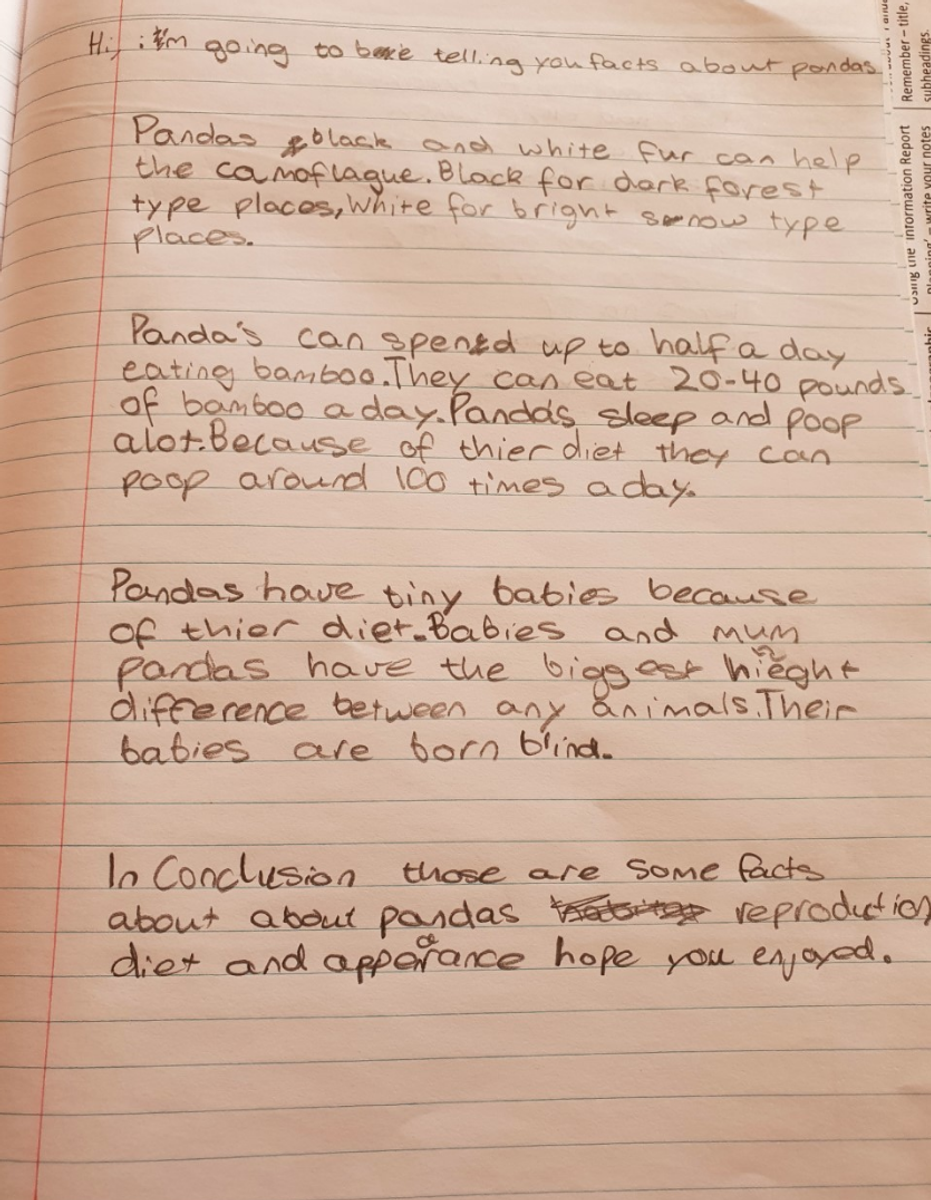 Hi, i'm going to be telling you facts about pandas
Pandas black and white fur can help
the camoflague. Black for dark forest
type places, White for bright snow type
places.
Panda's can spend up to half a day
eating bamboo. They can eat 20-40 pounds
of bamboo a day. Panda's sleep and poop
alot. Because of thier diet they can
poop around 100 times a day.
Pandas have tiny babies because
of thier diet. Babies and mum
pandas have the biggest hieght
difference between any animals. Their
babies are born blind.
In Conclusion those are some facts
about about pandas reproduction
diet and apperance hope you enjoyed.
Remember – title,
subheadings.
Using the Information Report
write your notes